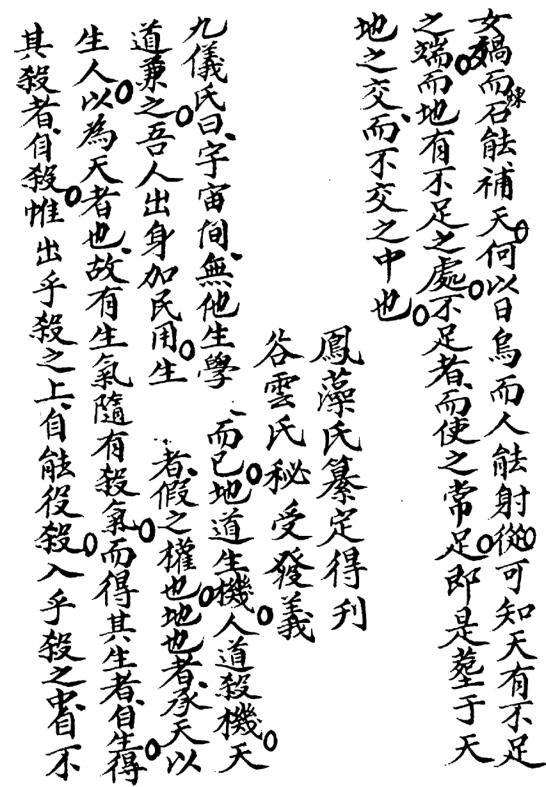 女媧而鍊石能補天。何以日烏而人能射。從可知天有不足
之端。而地有不足之處。不足者、而使之常足。即是塟于天
地之交、而不交之中也。
鳳藻氏纂定得刋
谷雲氏秘受發義
九儀氏曰、宇宙間、無他生學、而已。地道生機。人道殺機。天
道兼之。吾人出身加民用。生者、假之權也。地也者、承天以
生人。以為天者也、故有生氣隨有殺氣。而得其生者、自生。得
其殺者、自殺。惟出乎殺之上、自能役殺。入乎殺之中、自不